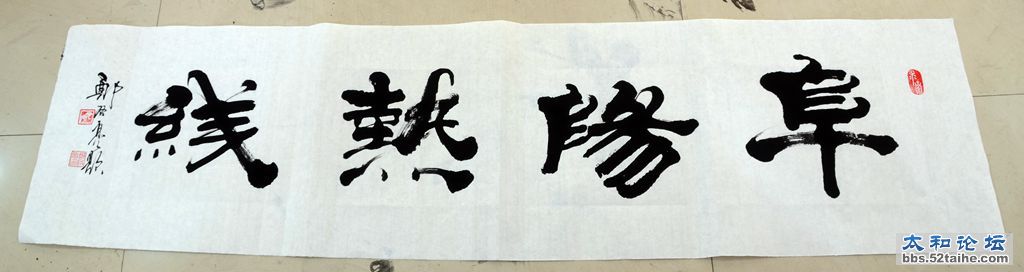 阜陽熱綫
太和论坛
bbs.52taihe.com